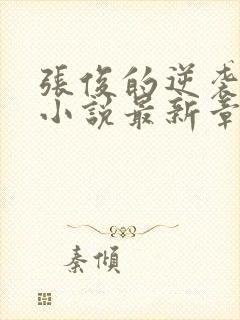 張俊的逆袭
小說最新章
秦傾